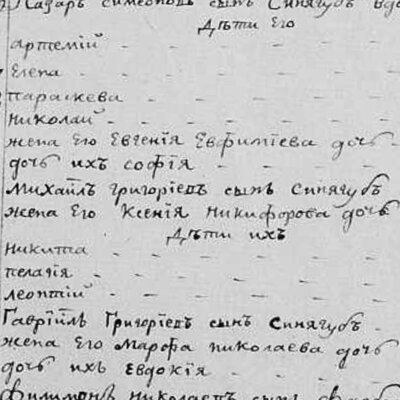 Лазарь симеоновъ сынъ Синягубъ вдо
Дѣти Его
артемій
Елена
параскева
николай
жена Его Евгенія Евфиміева дочь
дочь ихъ софія
Михаилъ григоріевъ сынъ синягубъ
жена Его Ксенія никифорова дочь
Дѣти ихъ
никита
пелагія
леонтій
Гавріилъ Григоріевъ сынъ синягубъ
жена Его Марфа николаева дочь
дочь ихъ Евдокія
Филимонъ николаевъ сынъ